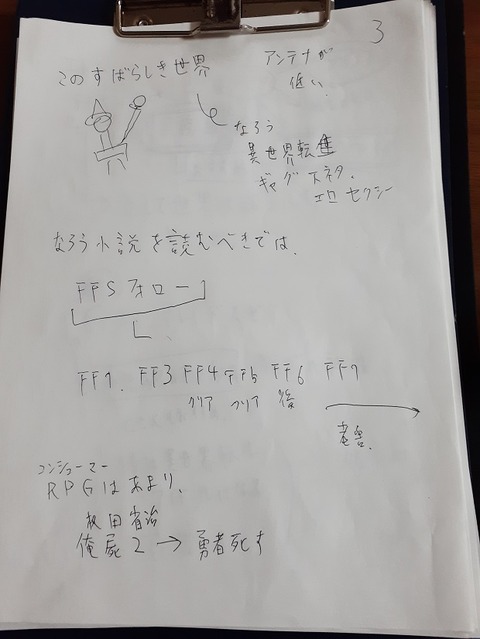 3
このすばらしき世界
アンテナが
低い
なろう
異世界転生
ギャグ 下ネタ.
エロ セクシー
なろう小説を読むべきでは.
FFSフォロー
FF1. FF3 FF4 FF5 FF6 FF7
クリア クリア 後
老害.
コンシューマー
RPGはあまり、
枡田省治
俺屍2→勇者死す